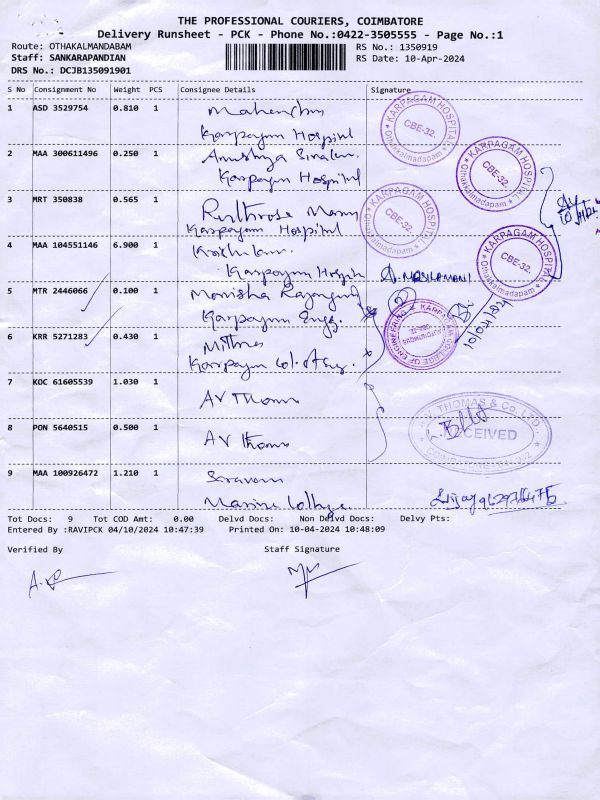 THE PROFESSIONAL COURIERS, COIMBATORE
Delivery Runsheet - PCK - Phone No.:0422-3505555 - Page No.:1
Route: OTHAKALMANDABAM
RS No.: 1350919
Staff: SANKARAPANDIAN
RS Date: 10-Apr-2024
DRS No.: DCJB135091901
S No Consignment No Weight PCS Consignee Details Signature
1 ASD 3529754 0.810 1 Mahendra
Karpagam Hospital
2 MAA 300611496 0.250 1 Anushya
Karpagam Hospital
3 MRT 350838 0.565 1
Karpagam Hospital
4 MAA 104551146 6.900 1
Karpagam Hospital
5 MTR 2446066 0.100 1 Monisha
Karpagam Engg.
6 KRR 5271283 0.430 1
Karpagam
7 KOC 61605539 1.030 1 AV Thomas
8 PON 5640515 0.500 1 AV Thomas
9 MAA 100926472 1.210 1 Sravan
Marine College
KARPAGAM HOSPITAL
CBE-32.
Othakkalmadapam
KARPAGAM HOSPITAL
CBE-32.
Othakkalmadapam
KARPAGAM HOSPITAL
CBE-32.
Othakkalmadapam
KARPAGAM HOSPITAL
CBE-32.
Othakkalmadapam
A. MASILAMANI
10/04/24
KARPAGAM COLLEGE OF ENGINEERING
AUTONOMOUS
A.V. THOMAS & Co. LTD.
RECEIVED
Tot Docs: 9 Tot COD Amt: 0.00 Delvd Docs: Non Delvd Docs: Delvy Pts:
Entered By :RAVIPCK 04/10/2024 10:47:39 Printed On: 10-04-2024 10:48:09
Verified By Staff Signature